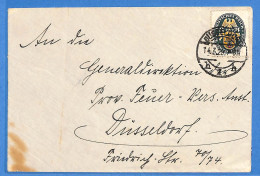 An die
Generaldirektion
Prov. Feuer-Vers. Anst.
Düsseldorf
Friedrich-Str. 70/74.